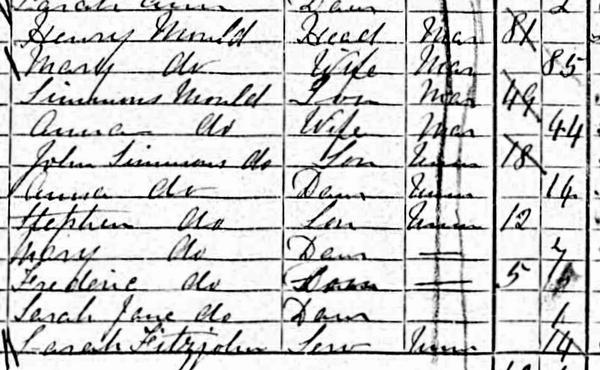 Sarah Ann Daur 2
Henry Mould Head Mar 81
Mary do Wife Mar 85
Simmons Mould Son Mar 49
do Wife Mar 44
John Simmons do Son Unm 18
Anna do Daur Unm 14
Stephen do Son Unm 12
Mary do Daur — 7
Frederic do — 5
Sarah Jane do Daur 1
Sarah Fitzjohn Serv Unm 14